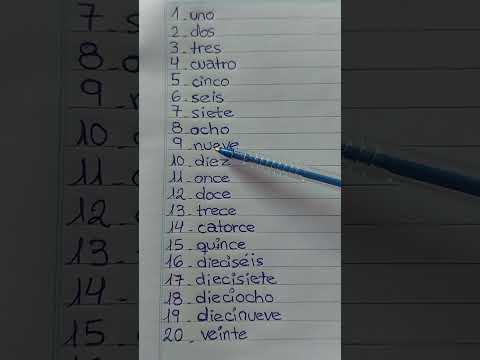 1_uno
2_dos
3_tres
4_cuatro
5_cinco
6_seis
7_siete
8_ocho
9_nueve
10_diez
11_once
12_doce
13_trece
14_catorce
15_quince
16_dieciséis
17_diecisiete
18_dieciocho
19_diecinueve
20_veinte